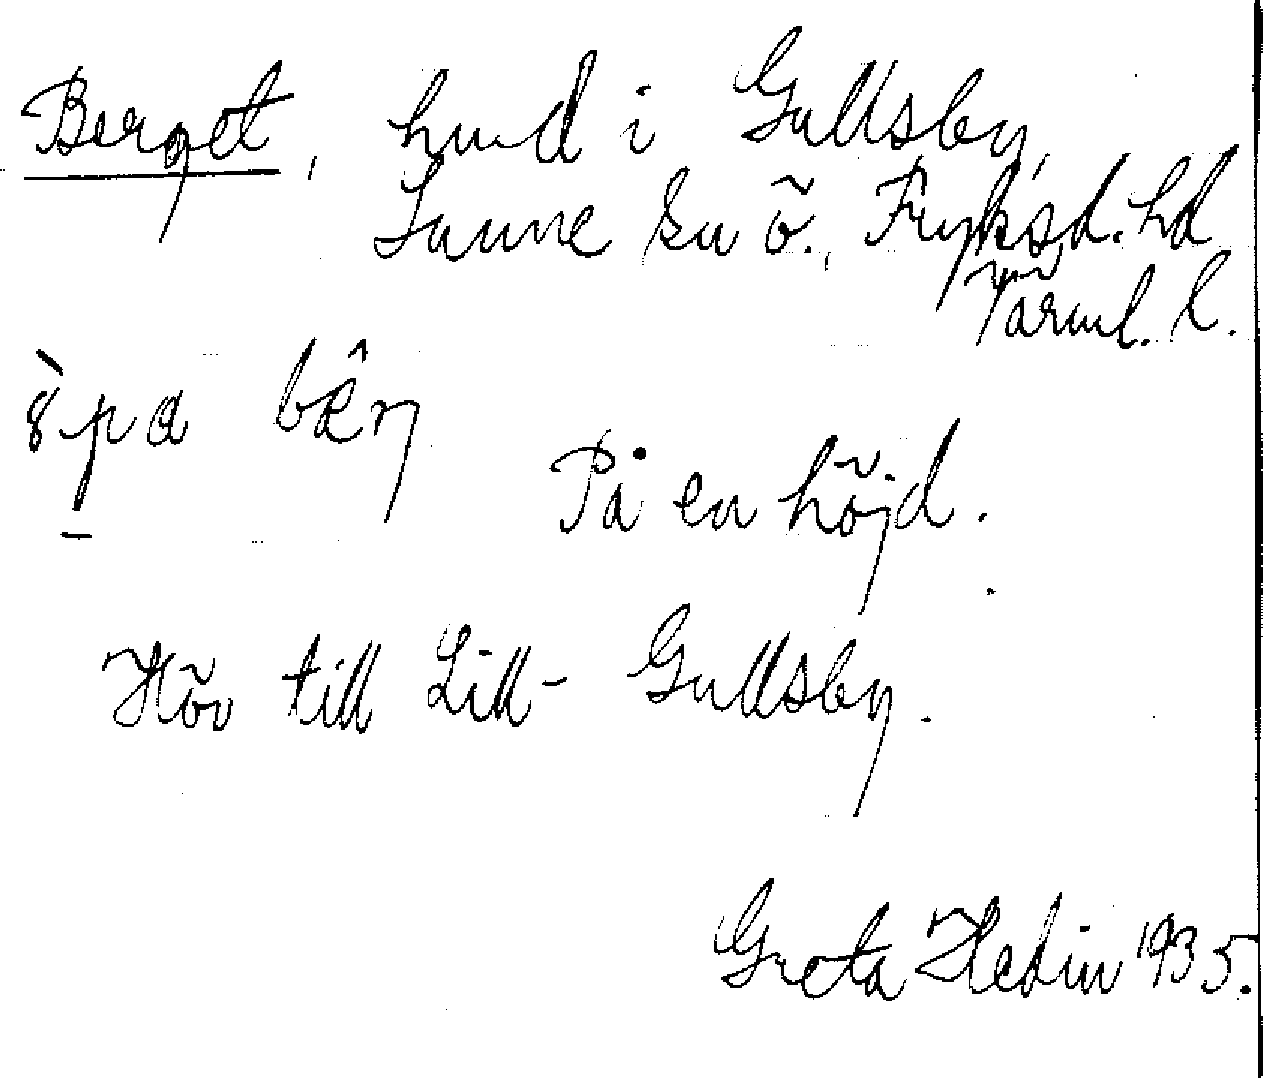 Berget, hmd i Gullsby,
Sunne sn ö., Fryksd. hd
Värml. l.
På en höjd.
Hör till Lill-Gullsby.
Greta Hedin 1935.